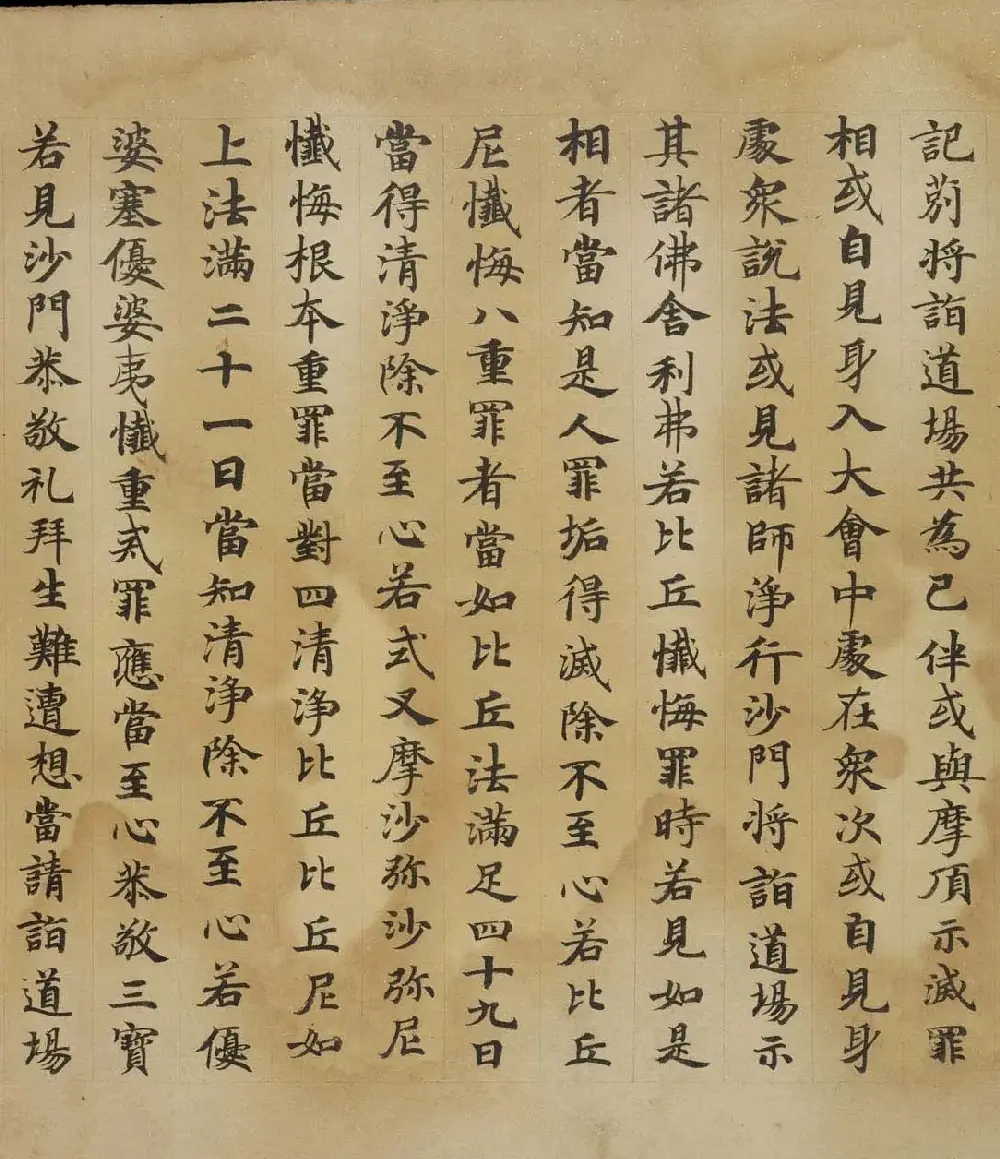 記莂将詣道場共為已伴或與摩頂示滅罪
相或自見身入大會中處在衆次或自見身
處衆說法或見諸師淨行沙門将詣道場示
其諸佛舍利弗若比丘懺悔罪時若見如是
相者當知是人罪垢得滅除不至心若比丘
尼懺悔八重罪者當如比丘法滿足四十九日
當得清淨除不至心若式叉摩沙弥沙弥尼
懺悔根本重罪當對四清淨比丘比丘尼如
上法滿二十一日當知清淨除不至心若優
婆塞優婆夷懺重罪應當至心恭敬三寶
若見沙門恭敬礼拜生難遭想當請詣道場